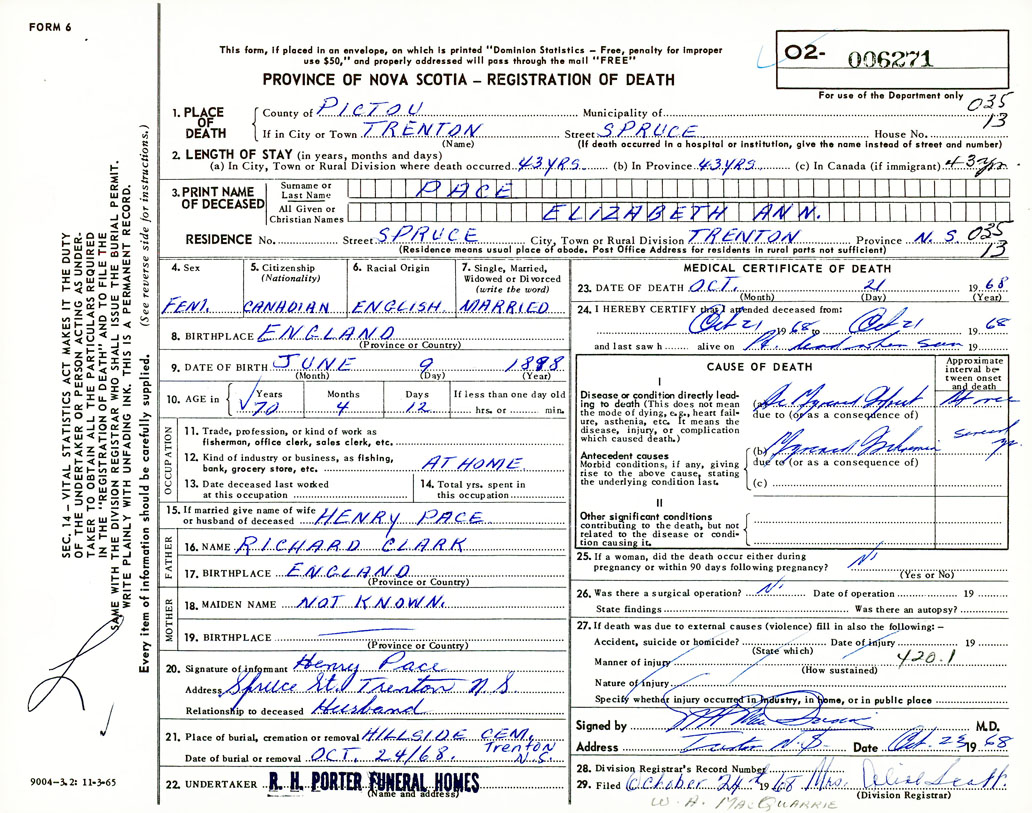 FORM 6
This form, if placed in an envelope, on which is printed "Dominion Statistics – Free, penalty for improper
use $50," and properly addressed will pass through the mail "FREE"
PROVINCE OF NOVA SCOTIA – REGISTRATION OF DEATH
02- 006271
For use of the Department only
035
13
1. PLACE OF DEATH
County of PICTOU Municipality of
If in City or Town TRENTON Street SPRUCE House No.
(Name) (If death occurred in a hospital or institution, give the name instead of street and number)
2. LENGTH OF STAY (in years, months and days)
(a) In City, Town or Rural Division where death occurred 43 YRS (b) In Province 43 YRS. (c) In Canada (if immigrant) 43 yr.
3. PRINT NAME OF DECEASED
Surname or Last Name PACE
All Given or Christian Names ELIZABETH ANN.
RESIDENCE No. Street SPRUCE City, Town or Rural Division TRENTON Province N.S. 035
(Residence means usual place of abode. Post Office Address for residents in rural parts not sufficient) 13
4. Sex
FEM.
5. Citizenship
(Nationality)
CANADIAN
6. Racial Origin
ENGLISH
7. Single, Married,
Widowed or Divorced
(write the word)
MARRIED
8. BIRTHPLACE ENGLAND
(Province or Country)
9. DATE OF BIRTH JUNE 9 1898
(Month) (Day) (Year)
10. AGE in Years Months Days If less than one day old
70 4 12 hrs. or min.
OCCUPATION
11. Trade, profession, or kind of work as
fisherman, office clerk, sales clerk, etc.
12. Kind of industry or business, as fishing,
bank, grocery store, etc. AT HOME
13. Date deceased last worked
at this occupation
14. Total yrs. spent in
this occupation
15. If married give name of wife
or husband of deceased HENRY PACE
FATHER
16. NAME RICHARD CLARK
17. BIRTHPLACE ENGLAND
(Province or Country)
MOTHER
18. MAIDEN NAME NOT KNOWN.
19. BIRTHPLACE
(Province or Country)
20. Signature of informant Henry Pace
Address Spruce St. Trenton N S
Relationship to deceased Husband
21. Place of burial, cremation or removal HILLSIDE CEM,
Trenton
Date of burial or removal OCT. 24/68. N.S.
22. UNDERTAKER R. H. PORTER FUNERAL HOMES
(Name and address)
MEDICAL CERTIFICATE OF DEATH
23. DATE OF DEATH OCT. 21 1968
(Month) (Day) (Year)
24. I HEREBY CERTIFY that I attended deceased from:
Oct 21 1968 to Oct 21 1968
and last saw h alive on dead when seen 19
CAUSE OF DEATH
Approximate
interval be-
tween onset
and death
I
Disease or condition directly lead-
ing to death (This does not mean
the mode of dying, e.g., heart fail-
ure, asthenia, etc. It means the
disease, injury, or complication
which caused death.)
(a)
due to (or as a consequence of)
Antecedent causes
Morbid conditions, if any, giving
rise to the above cause, stating
the underlying condition last.
(b)
due to (or as a consequence of)
(c)
II
Other significant conditions
contributing to the death, but not
related to the disease or condi-
tion causing it.
25. If a woman, did the death occur either during
pregnancy or within 90 days following pregnancy? No
(Yes or No)
26. Was there a surgical operation? No Date of operation 19
State findings Was there an autopsy?
27. If death was due to external causes (violence) fill in also the following: –
Accident, suicide or homicide? Date of injury 19
(State which)
Manner of injury 420.1
(How sustained)
Nature of injury
Specify whether injury occurred in industry, in home, or in public place
Signed by M.D.
Address Trenton N.S. Date Oct. 23 1968
28. Division Registrar's Record Number
29. Filed October 24th 1968 Mrs. Scott
(Division Registrar)
W. A. MacQUARRIE
SEC. 14 – VITAL STATISTICS ACT MAKES IT THE DUTY
OF THE UNDERTAKER OR PERSON ACTING AS UNDER-
TAKER TO OBTAIN ALL THE PARTICULARS REQUIRED
IN THE "REGISTRATION OF DEATH" AND TO FILE THE
SAME WITH THE DIVISION REGISTRAR WHO SHALL ISSUE THE BURIAL PERMIT.
WRITE PLAINLY WITH UNFADING INK. THIS IS A PERMANENT RECORD.
Every item of information should be carefully supplied. (See reverse side for instructions.)
9004–3.2: 11-3-65